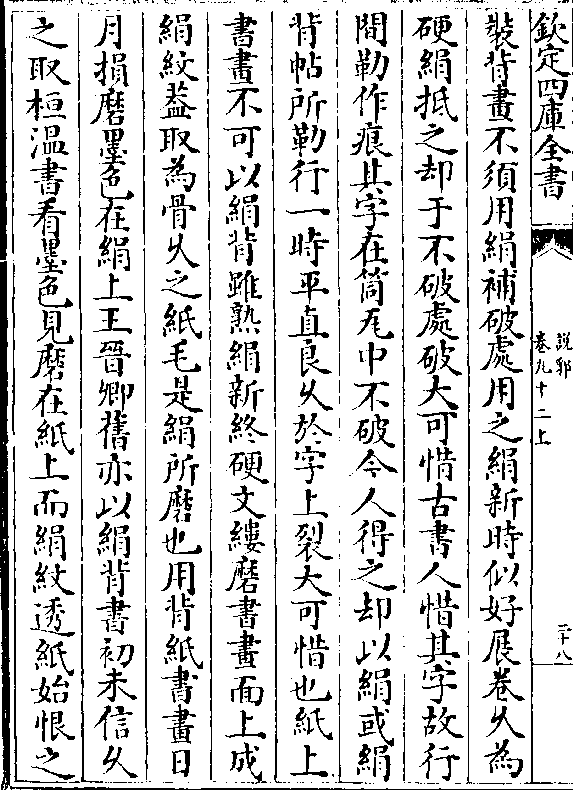 欽定四庫全書
說郛
卷九十二上
二十八
裝背畫不須用絹補破處用之絹新時似好展卷久為
硬絹抵之却于不破處破大可惜古書人惜其字故行
間勒作痕其字在筒瓦中不破今人得之却以絹或絹
背帖所勒行一時平直良久於字上裂大可惜也紙上
書畫不可以絹背雖熟絹新終硬文縷磨書畫面上成
絹紋葢取為骨久之紙毛是絹所磨也用背紙書畫日
月損磨墨色在絹上王晉卿舊亦以絹背書初未信久
之取桓溫書看墨色見磨在紙上而絹紋透紙始恨之